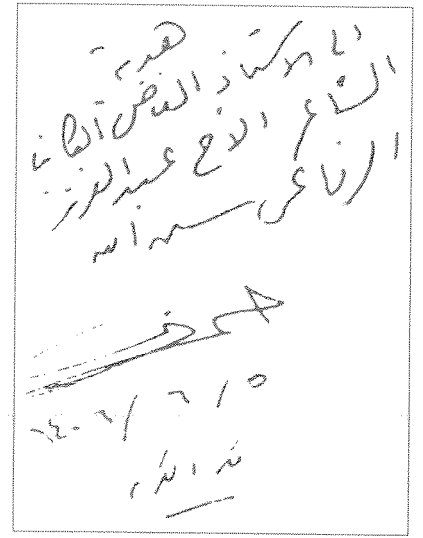 هدية
إلى الأستاذ الفاضل الكاتب
الشاعر الأخ عبد العزيز
الرفاعي سلمه الله
٥ / ٦ / ١٤٠٦